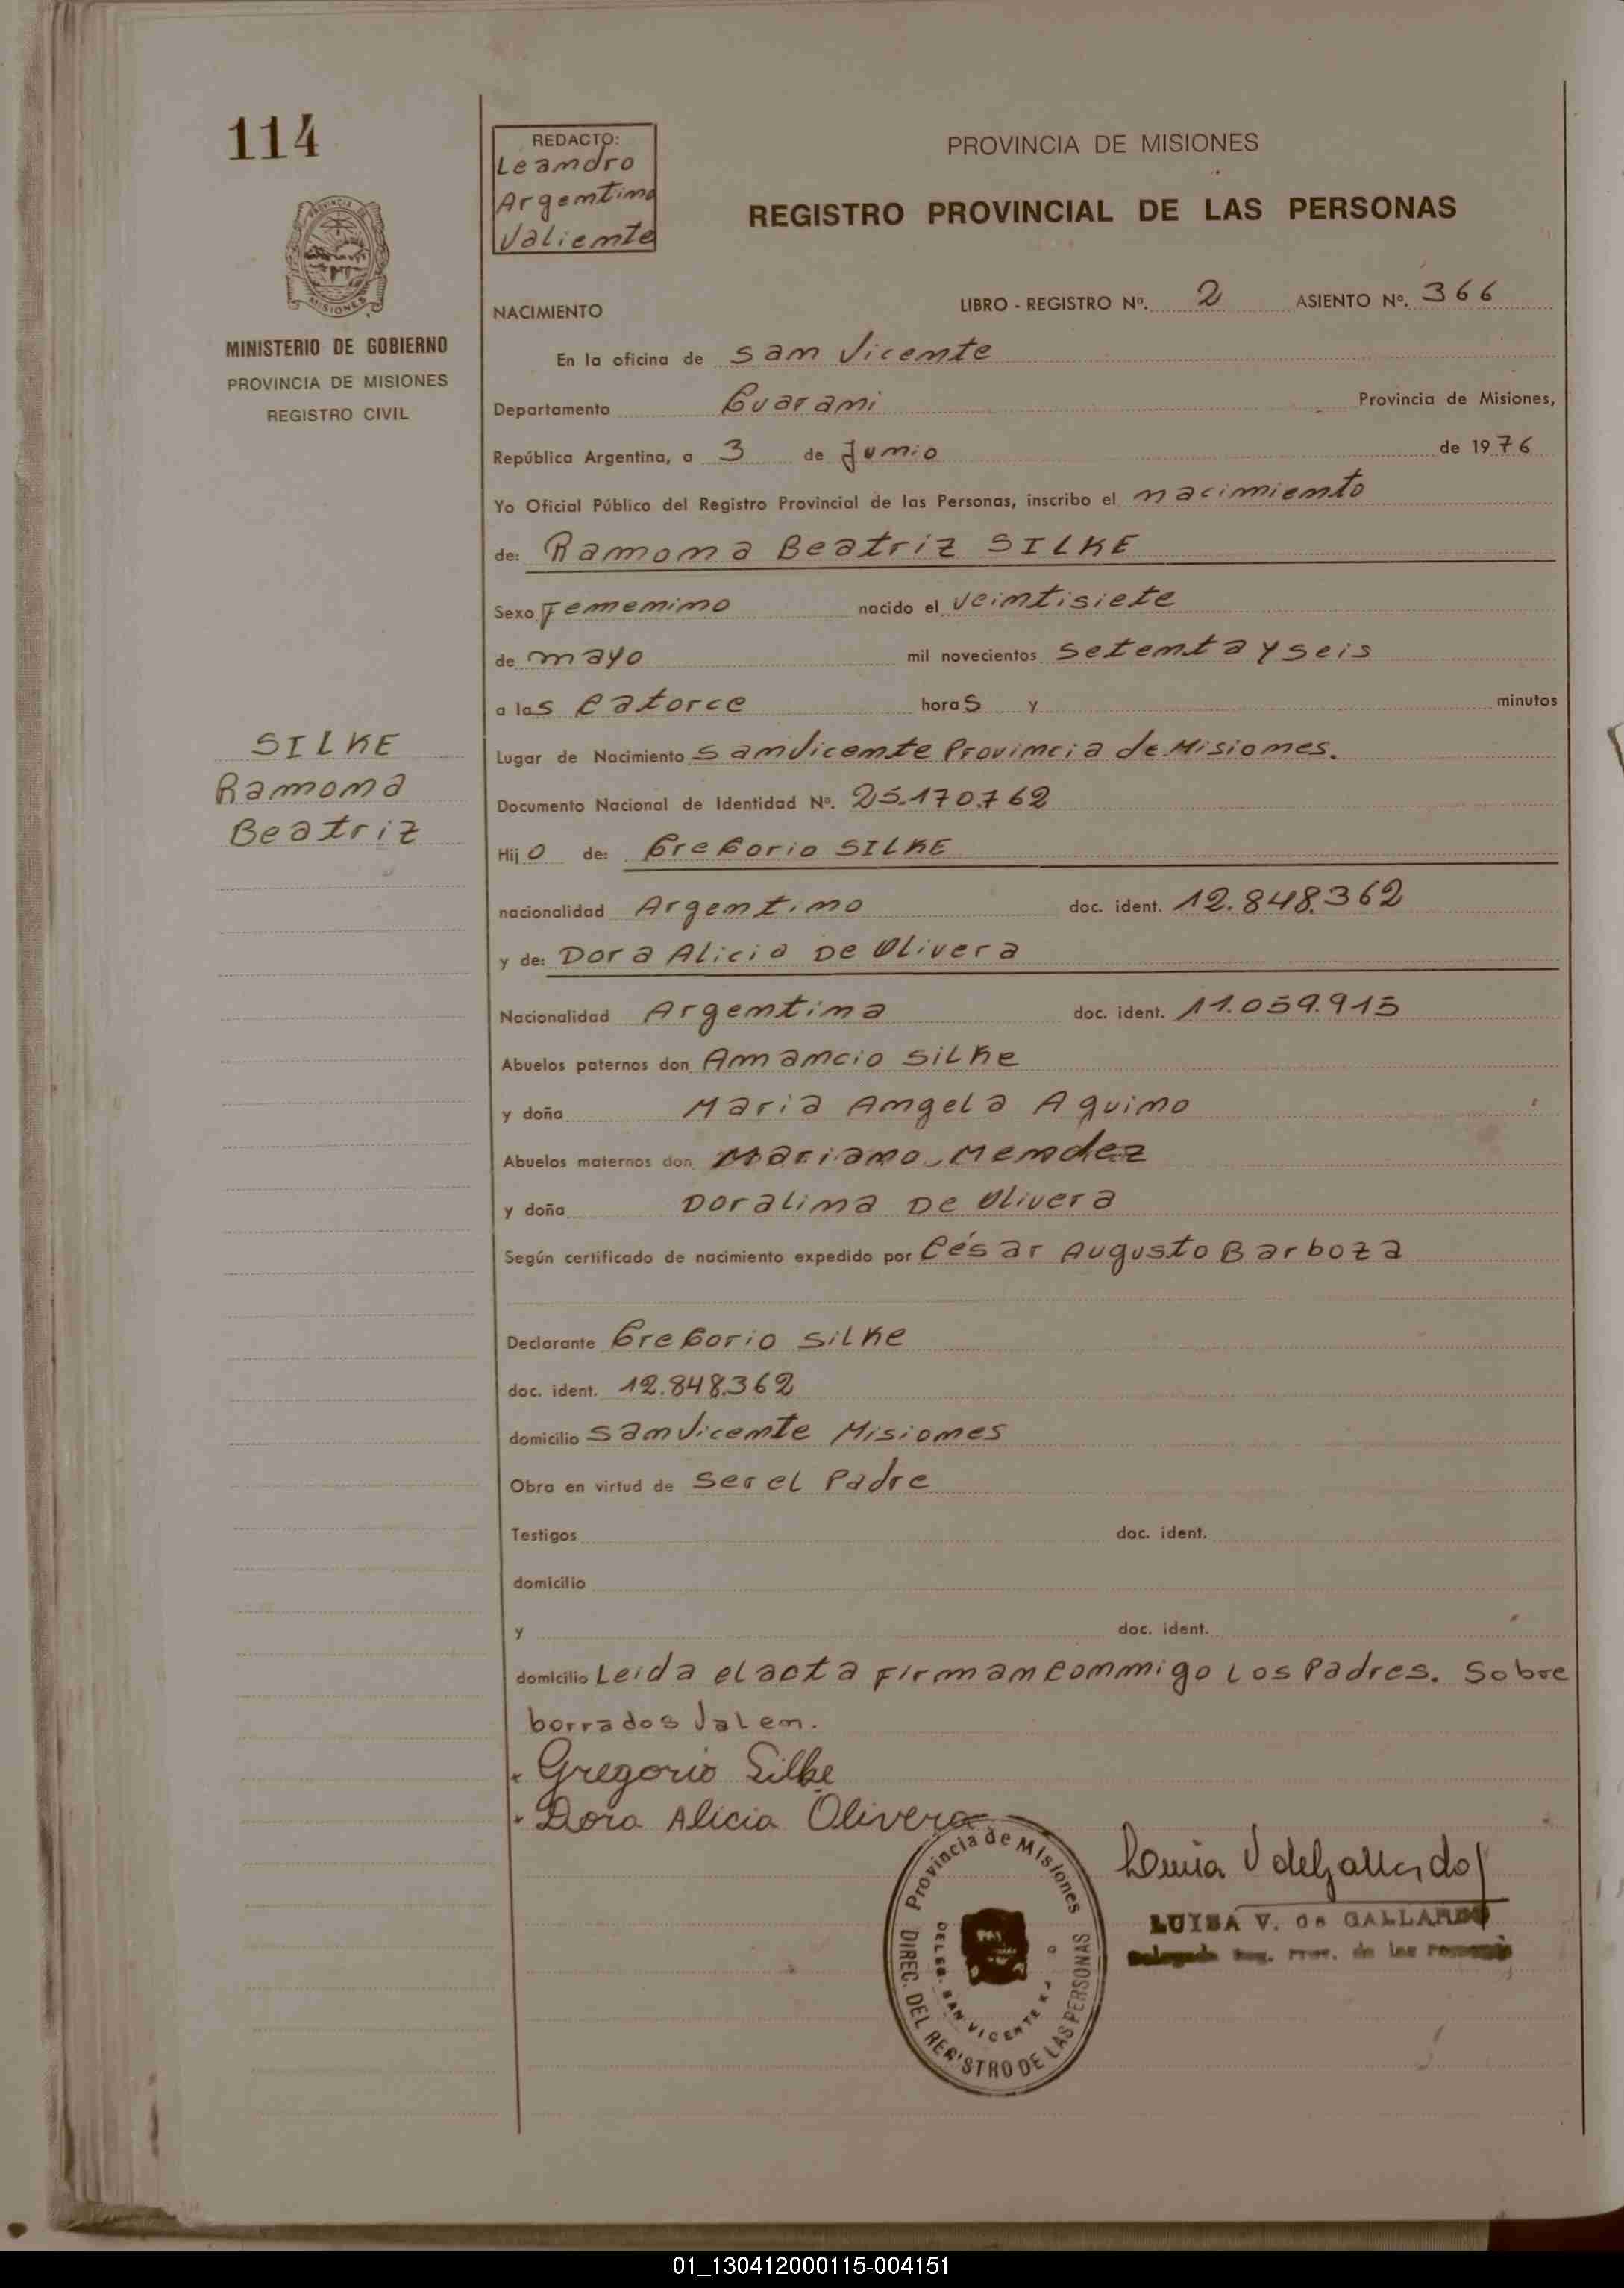 114
REDACTO:
Leandro
Argentino
Valiente
PROVINCIA DE MISIONES
REGISTRO PROVINCIAL DE LAS PERSONAS
PROVINCIA DE
MISIONES
MINISTERIO DE GOBIERNO
PROVINCIA DE MISIONES
REGISTRO CIVIL
NACIMIENTO
LIBRO - REGISTRO Nº. 2 ASIENTO Nº. 366
En la oficina de San Vicente
Departamento Guarani Provincia de Misiones,
República Argentina, a 3 de Junio de 1976
Yo Oficial Público del Registro Provincial de las Personas, inscribo el nacimiento
de: Ramona Beatriz SILKE
Sexo Femenino nacido el veintisiete
de mayo mil novecientos setenta y seis
a las catorce horas y minutos
SILKE
Ramona
Beatriz
Lugar de Nacimiento San Vicente Provincia de Misiones.
Documento Nacional de Identidad Nº. 25.170.762
Hijo de: Gregorio SILKE
nacionalidad Argentino doc. ident. 12.848.362
y de: Dora Alicia De Olivera
Nacionalidad Argentina doc. ident. 11.059.915
Abuelos paternos don Amancio Silke
y doña Maria Angela Aquino
Abuelos maternos don Mariano Mendez
y doña Doralina De Olivera
Según certificado de nacimiento expedido por César Augusto Barboza
Declarante Gregorio Silke
doc. ident. 12.848.362
domicilio San Vicente Misiones
Obra en virtud de ser el Padre
Testigos doc. ident.
domicilio
y doc. ident.
domicilio Leida el acta firman conmigo los Padres. Sobre
borrados valen.
Gregorio Silke
Dora Alicia Olivera
Provincia de Misiones
DIREC. DEL REGISTRO DE LAS PERSONAS
DELEG. SAN VICENTE
Luisa V de Gallardo
LUISA V. de GALLARDO
Delegada Reg. Prov. de las Personas
01_130412000115-004151